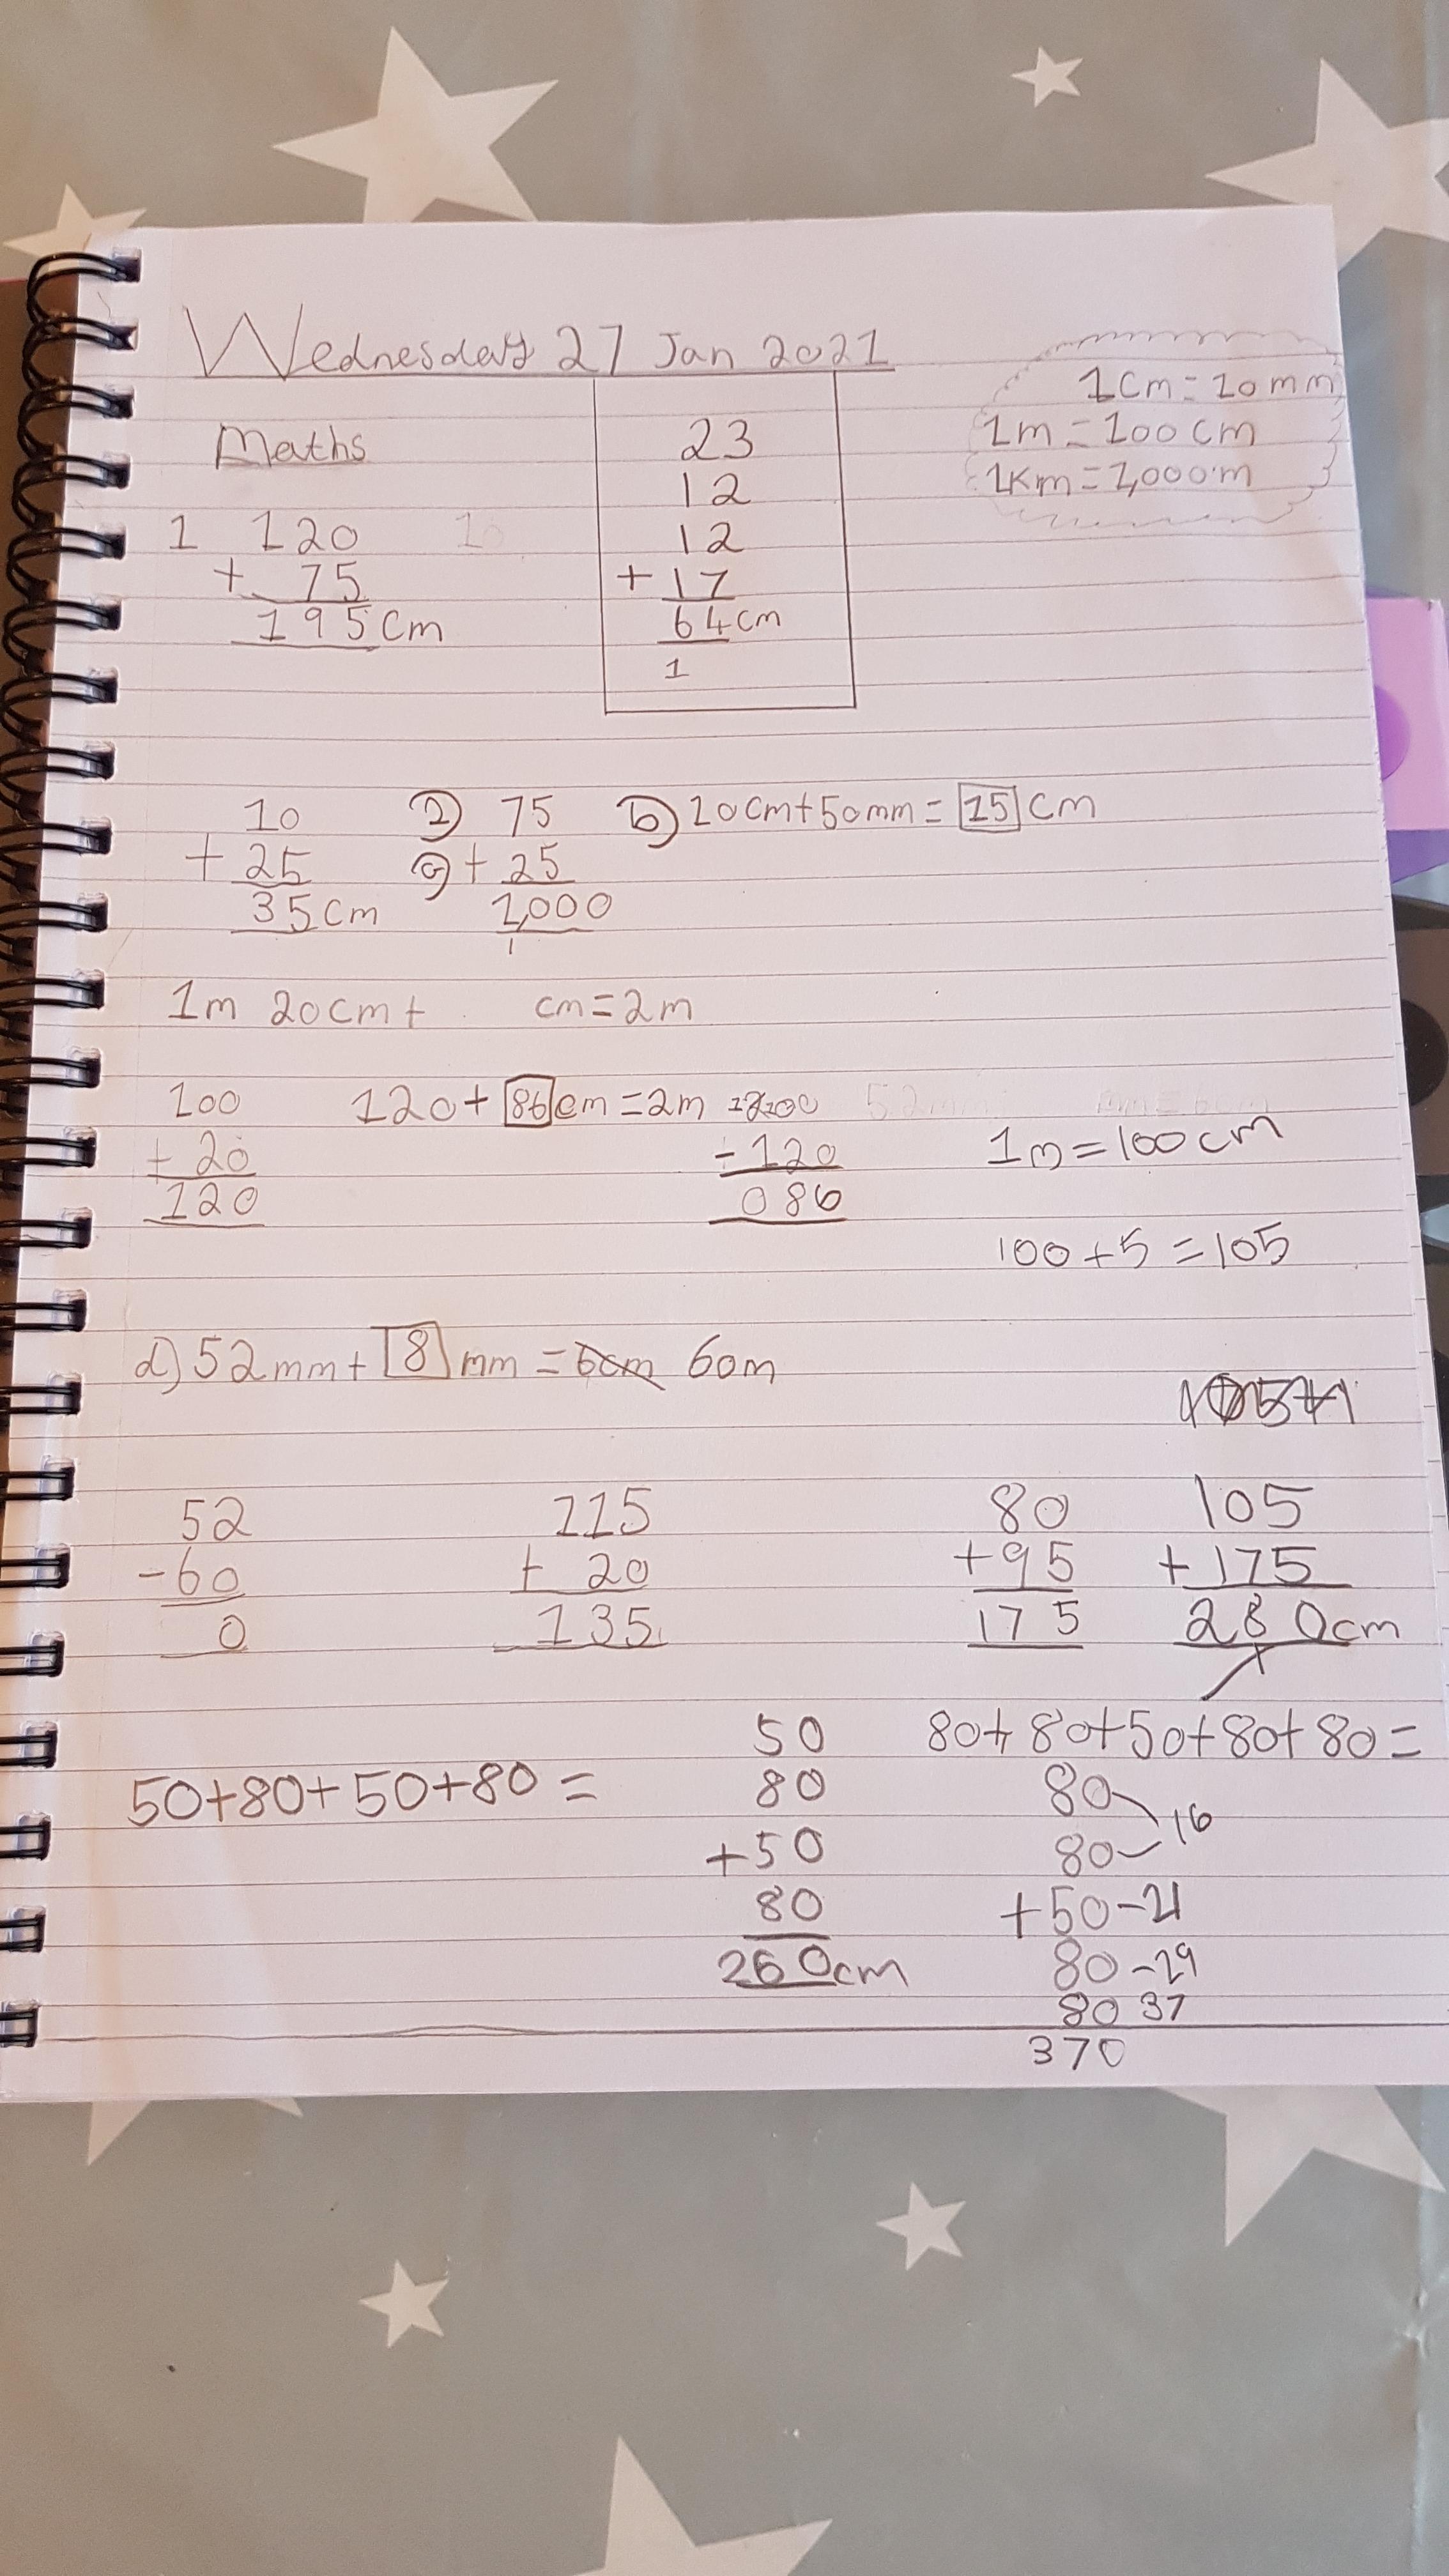 Wednesday 27 Jan 2021
1cm = 10mm
1m = 100cm
1km = 1,000m
Maths
1 120
+ 75
195cm
23
12
12
+ 17
64cm
1
10
+ 25
35cm
2) 75
a) + 25
1,000
1
b) 10cm + 50mm = 15 cm
1m 20cm + cm = 2m
100
+ 20
120
120 + 86 cm = 2m
- 120
086
1m = 100cm
100 + 5 = 105
d) 52mm + 8 mm = 6cm 60m
52
- 60
0
115
+ 20
135
80
+ 95
175
105
+ 175
280cm
1
50 + 80 + 50 + 80 =
50
80
+ 50
80
260cm
80 + 80 + 50 + 80 + 80 =
80
80 16
+ 50 - 21
80 - 29
80 37
370